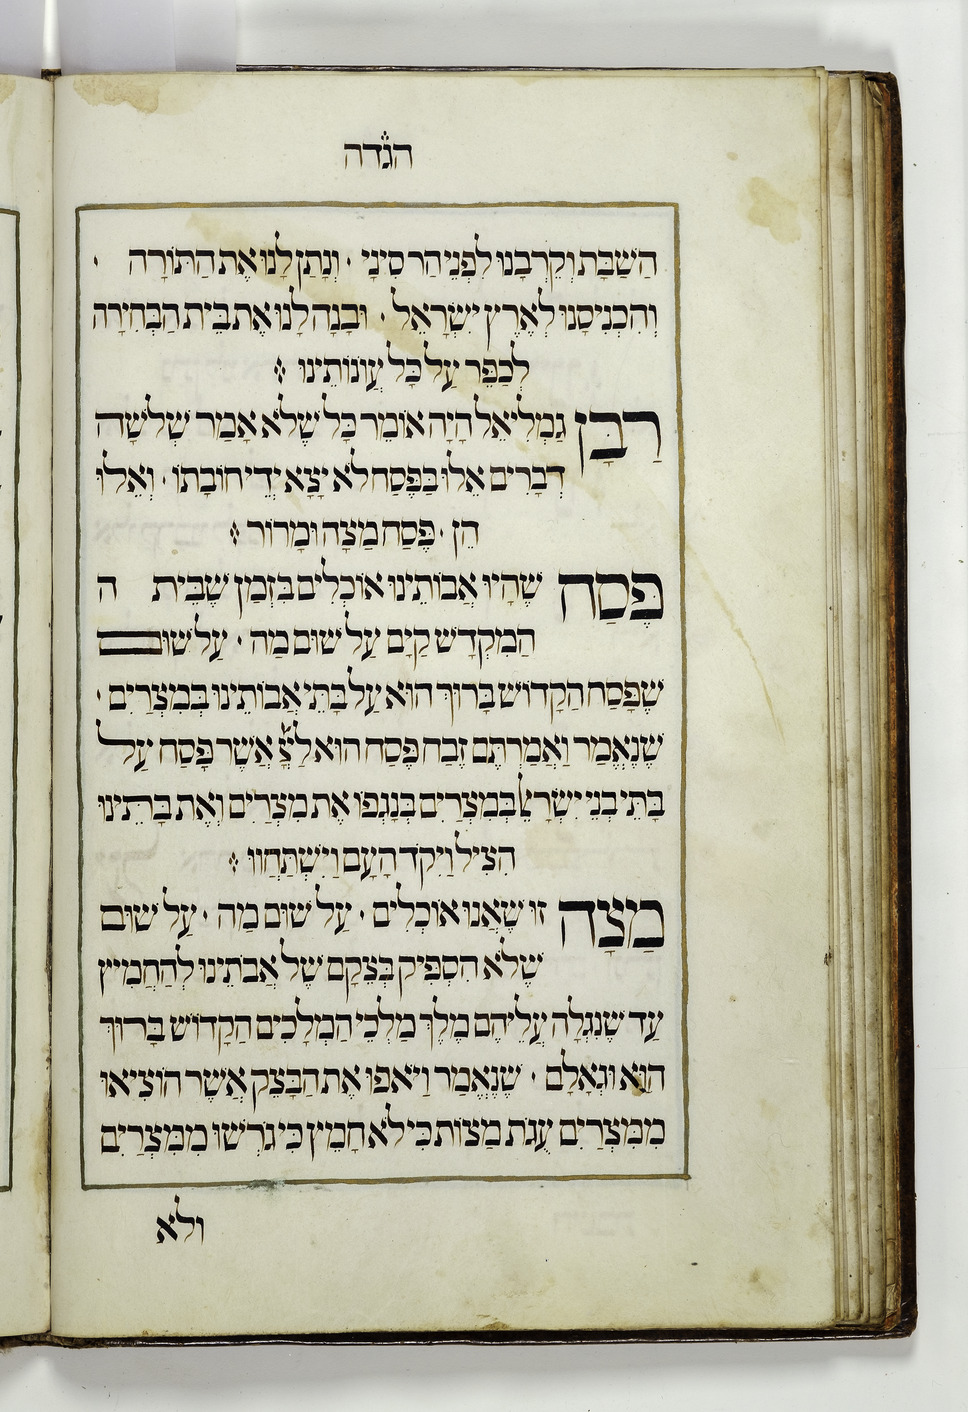 הגדה
הַשַׁבָּת וְקֵרְבָנוּ לִפְנֵי הַר סִינַי · וְנָתַן לָנוּ אֶת הַתּוֹרָה ·
וְהִכְנִיסָנוּ לְאֶרֶץ יִשְׂרָאֵל · וּבָנָה לָנוּ אֶת בֵּית הַבְּחִירָה
לְכַפֵּר עַל כָּל עֲוֹנוֹתֵינוּ
רַבָּן גַמְלִיאֵל הָיָה אוֹמֵר כָּל שֶׁלֹא אָמַר שְׁלֹשָׁה
דְבָרִים אֵלוּ בַּפֶּסַח לֹא יָצָא יְדֵי חוֹבָתוֹ · וְאֵלוּ
הֵן · פֶּסַח מַצָה וּמָרוֹר
פֶּסַח שֶׁהָיוּ אֲבוֹתֵינוּ אוֹכְלִים בִּזְמַן שֶׁבֵּית ה
הַמִקְדָשׁ קַיָם עַל שׁוּם מַה · עַל שׁוּם
שֶׁפָּסַח הַקָדוֹשׁ בָּרוּךְ הוּא עַל בָּתֵּי אֲבוֹתֵינוּ בְּמִצְרַיִם ·
שֶׁנֶאֱמַר וַאֲמַרְתֶּם זֶבַח פֶּסַח הוּא לַיְיָ אֲשֶׁר פָּסַח עַל
בָּתֵּי בְנֵי יִשְׂרָאֵל בְּמִצְרַיִם בְּנָגְפוֹ אֶת מִצְרַיִם וְאֶת בָּתֵּינוּ
הִצִיל וַיִקֹד הָעָם וַיִשְׁתַּחֲווּ
מַצָה זוּ שֶׁאֲנוּ אוֹכְלִים · עַל שׁוּם מַה · עַל שׁוּם
שֶׁלֹא הִסְפִּיק בְּצֵקָם שֶׁל אֲבֹתֵינוּ לְהַחֲמִיץ
עַד שֶׁנִגְלָה עֲלֵיהֶם מֶלֶךְ מַלְכֵי הַמְלָכִים הַקָדוֹשׁ בָּרוּךְ
הוּא וּגְאָלָם · שֶׁנֶאֱמַר וַיֹאפוּ אֶת הַבָּצֵק אֲשֶׁר הוֹצִיאוּ
מִמִצְרַיִם עֻגֹת מַצוֹת כִּי לֹא חָמֵץ כִּי גֹרְשׁוּ מִמִצְרַיִם
ולא